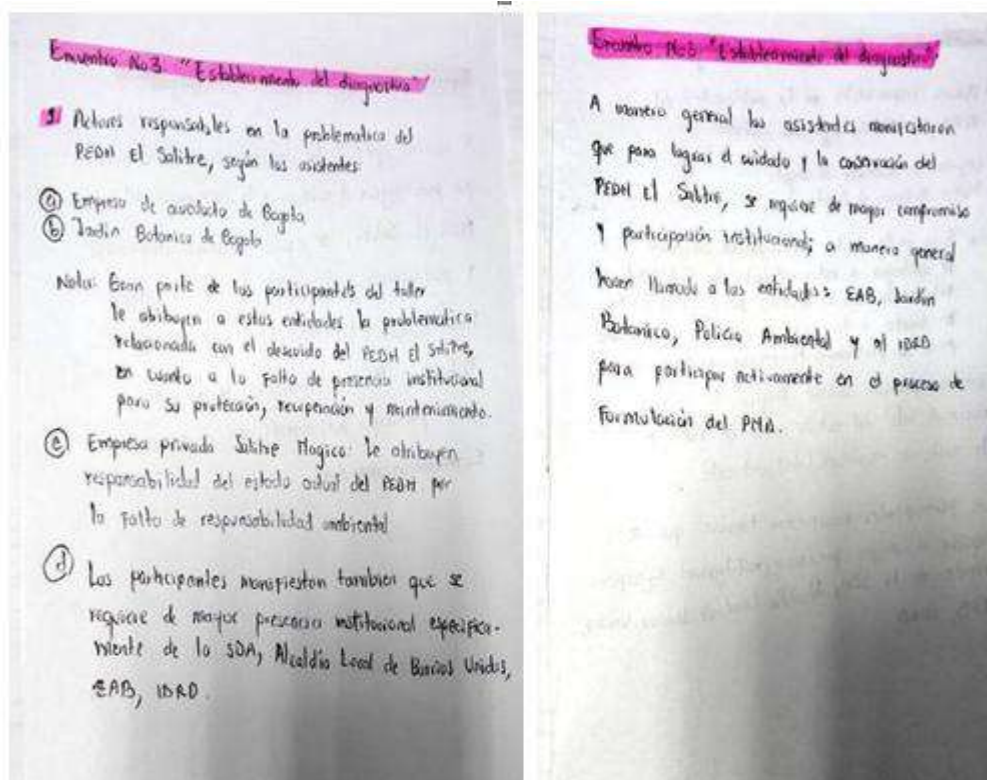 Encuentro No 3 "Establecimiento del diagnostico"
1 Actores responsables en la problematica del
PEDH El Salitre, según los asistentes
a Empresa de acueducto de Bogota
b Jardin Botanico de Bogota
Nota: Gran parte de los participantes del taller
le atribuyen a estas entidades la problematica
relacionada con el descuido del PEDH El Salitre,
en cuanto a la falta de presencia institucional
para su protección, recuperación y mantenimiento.
c Empresa privada Salitre Magico: le atribuyen
responsabilidad del estado actual del PEDH por
la falta de responsabilidad ambiental
d Los participantes manifiestan tambien que se
requiere de mayor presencia institucional especifica-
mente de la SDA, Alcaldía Local de Barrios Unidos,
EAB, IDRD.
Encuentro No 3 "Establecimiento del diagnostico"
A manera general los asistentes manifestaron
que para lograr el cuidado y la conservación del
PEDH El Salitre, se requiere de mayor compromiso
y participación institucional; a manera general
hacen llamado a las entidades: EAB, Jardín
Botanico, Policia Ambiental y al IDRD
para participar activamente en el proceso de
Formulación del PMA.